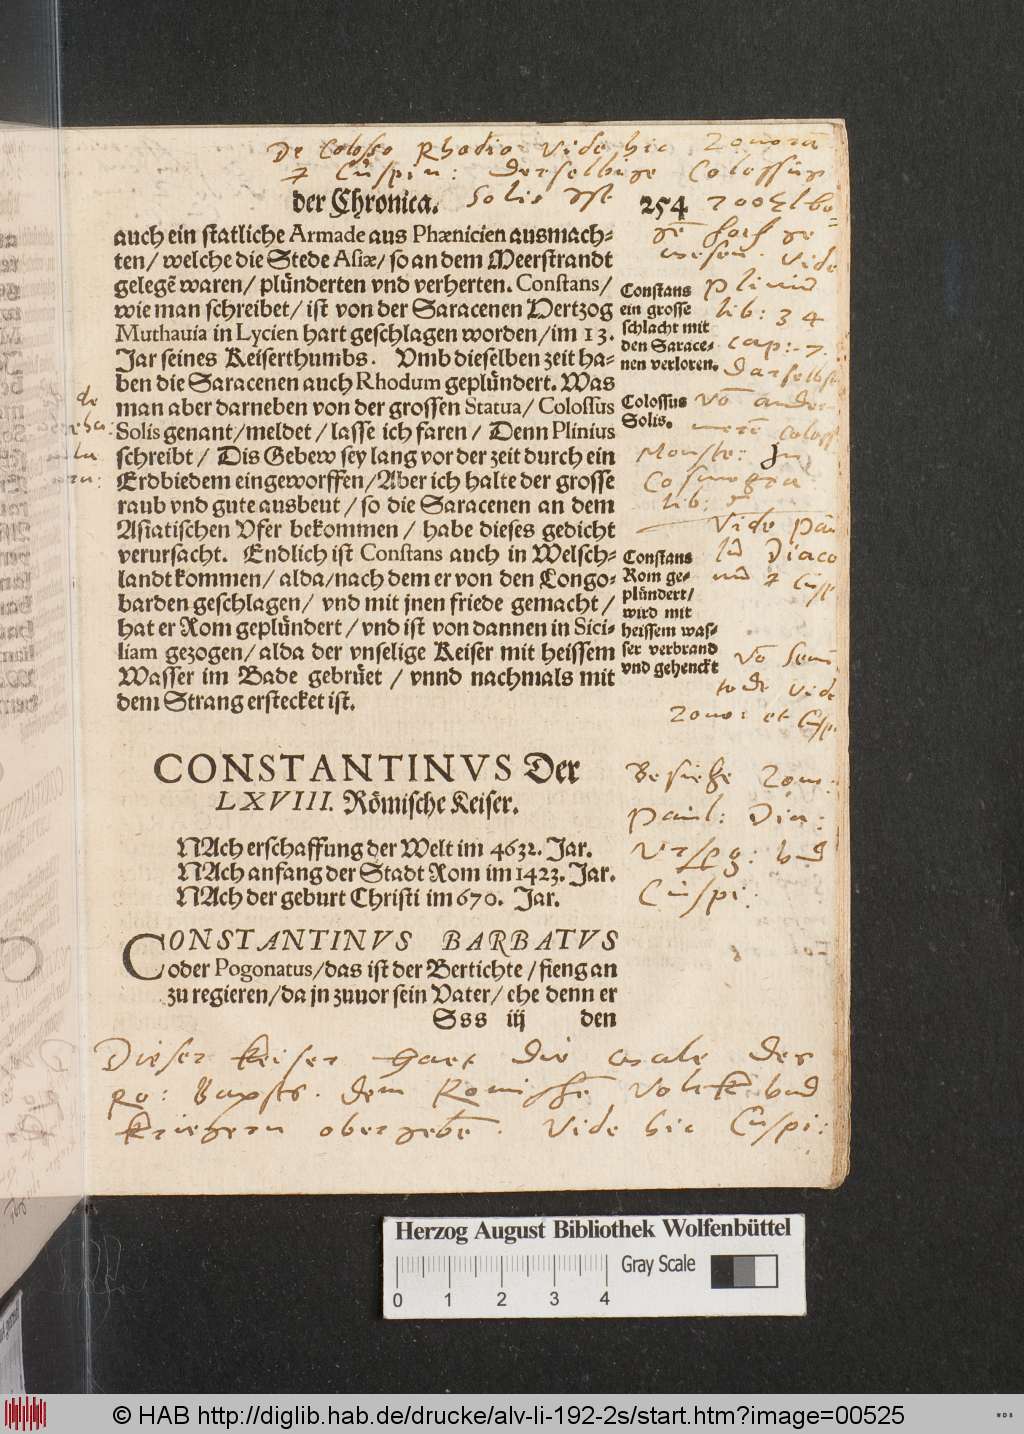 De Colosso Rhodio vide hic Zonorā
et Cuspin: derselbige Colossus
Solis ist
der Chronica. 254
auch ein statliche Armade aus Phænicien ausmach-
ten/ welche die Stede Asiæ/ so an dem Meerstrandt
gelegē waren/ plünderten vnd verherten. Constans/
wie man schreibet/ ist von der Saracenen Hertzog
Muthauia in Lycien hart geschlagen worden/im 13.
Jar seines Keiserthumbs. Vmb dieselben zeit ha-
ben die Saracenen auch Rhodum geplündert. Was
man aber darneben von der grossen Statua/ Colossus
Solis genant/meldet/ lasse ich faren/ Denn Plinius
schreibt/ Dis Gebew sey lang vor der zeit durch ein
Erdbiedem eingeworffen/Aber ich halte der grosse
raub vnd gute ausbeut/ so die Saracenen an dem
Asiatischen Vfer bekommen/ habe dieses gedicht
verursacht. Endlich ist Constans auch in Welsch-
landt kommen/ alda/nach dem er von den Longo-
barden geschlagen/ vnd mit jnen friede gemacht/
hat er Rom geplündert/vnd ist von dannen in Sici-
liam gezogen/ alda der vnselige Keiser mit heissem
Wasser im Bade gebrüet/ vnnd nachmals mit
dem Strang erstecket ist.
Constans
ein grosse
schlacht mit
den Sarace-
nen verloren.
Colossus
Solis.
Constans
Rom ge-
plündert/
wird mit
heissem was-
ser verbrand
vnd gehenckt
vide
lib: 34
cap: 7.
Cosmogra
lib:
vide
Diaco
vide
Zono: et Cusp.
CONSTANTINVS Der
LXVIII. Römische Keiser.
Besiehe Zon:
Paul: Dia:
Vrspg: vnd
Cuspi:
NAch erschaffung der Welt im 4632. Jar.
NAch anfang der Stadt Rom im 1423. Jar.
NAch der geburt Christi im 670. Jar.
CONSTANTINVS BARBATVS
oder Pogonatus/das ist der Bertichte/ fieng an
zu regieren/da jn zuuor sein Vater/ ehe denn er
Sss iij den
Dieser keiser haet die wale der
Ro: Bapsts. dem Romischē volck vnd
kriegern obergebē. Vide hic Cuspi:
Herzog August Bibliothek Wolfenbüttel
Gray Scale
0 1 2 3 4
© HAB http://diglib.hab.de/drucke/alv-li-192-2s/start.htm?image=00525